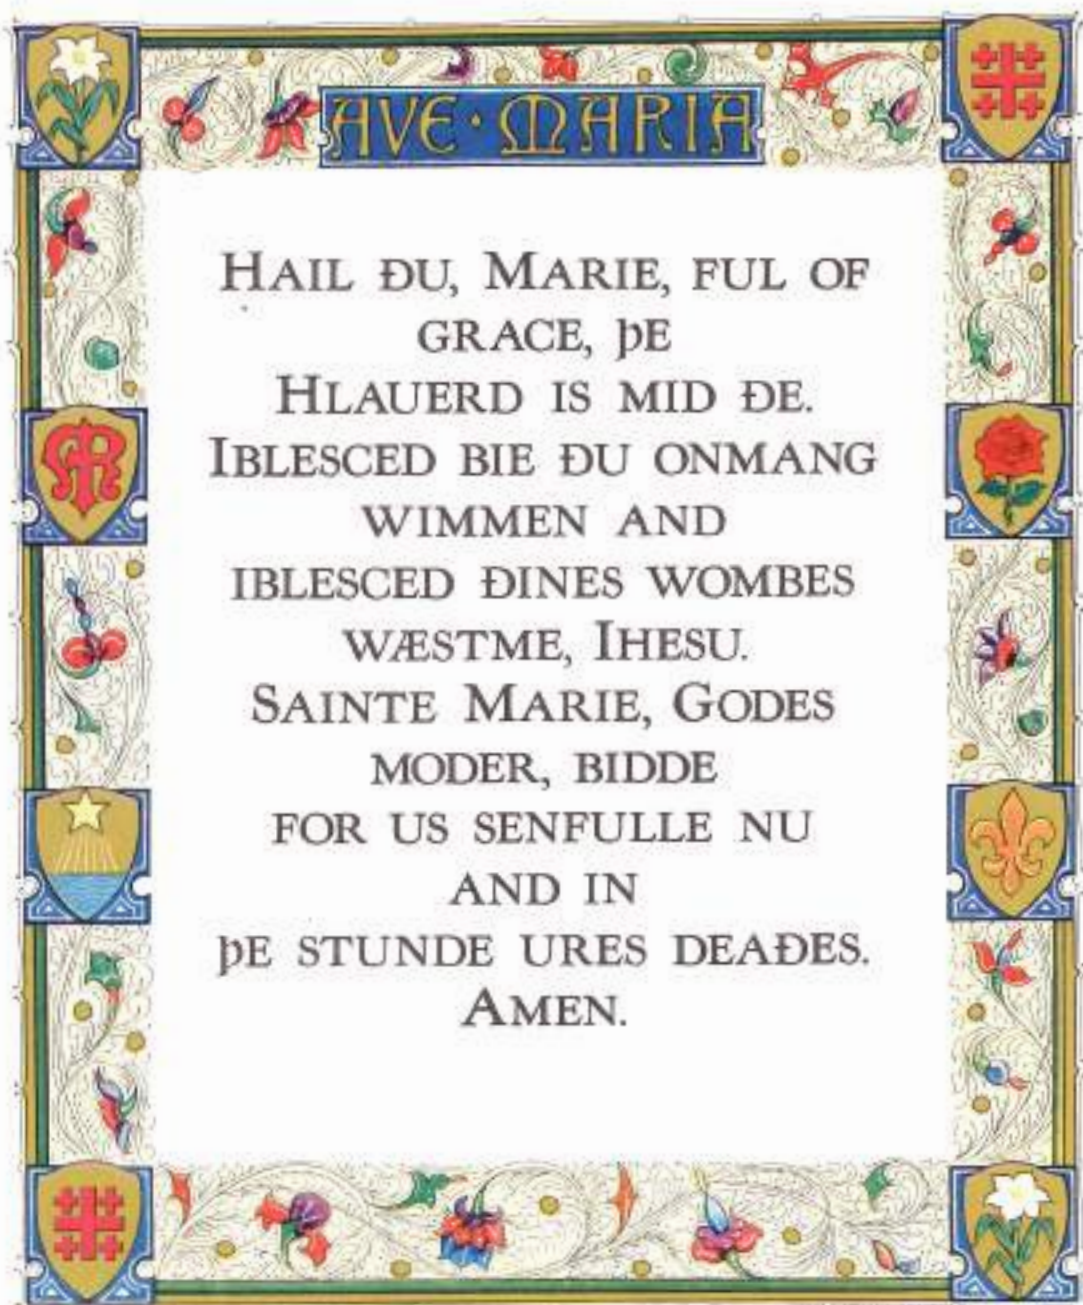 AVE · MARIA
HAIL ÐU, MARIE, FUL OF
GRACE, ÞE
HLAUERD IS MID ÐE.
IBLESCED BIE ÐU ONMANG
WIMMEN AND
IBLESCED ÐINES WOMBES
WÆSTME, IHESU.
SAINTE MARIE, GODES
MODER, BIDDE
FOR US SENFULLE NU
AND IN
ÞE STUNDE URES DEAÐES.
AMEN.